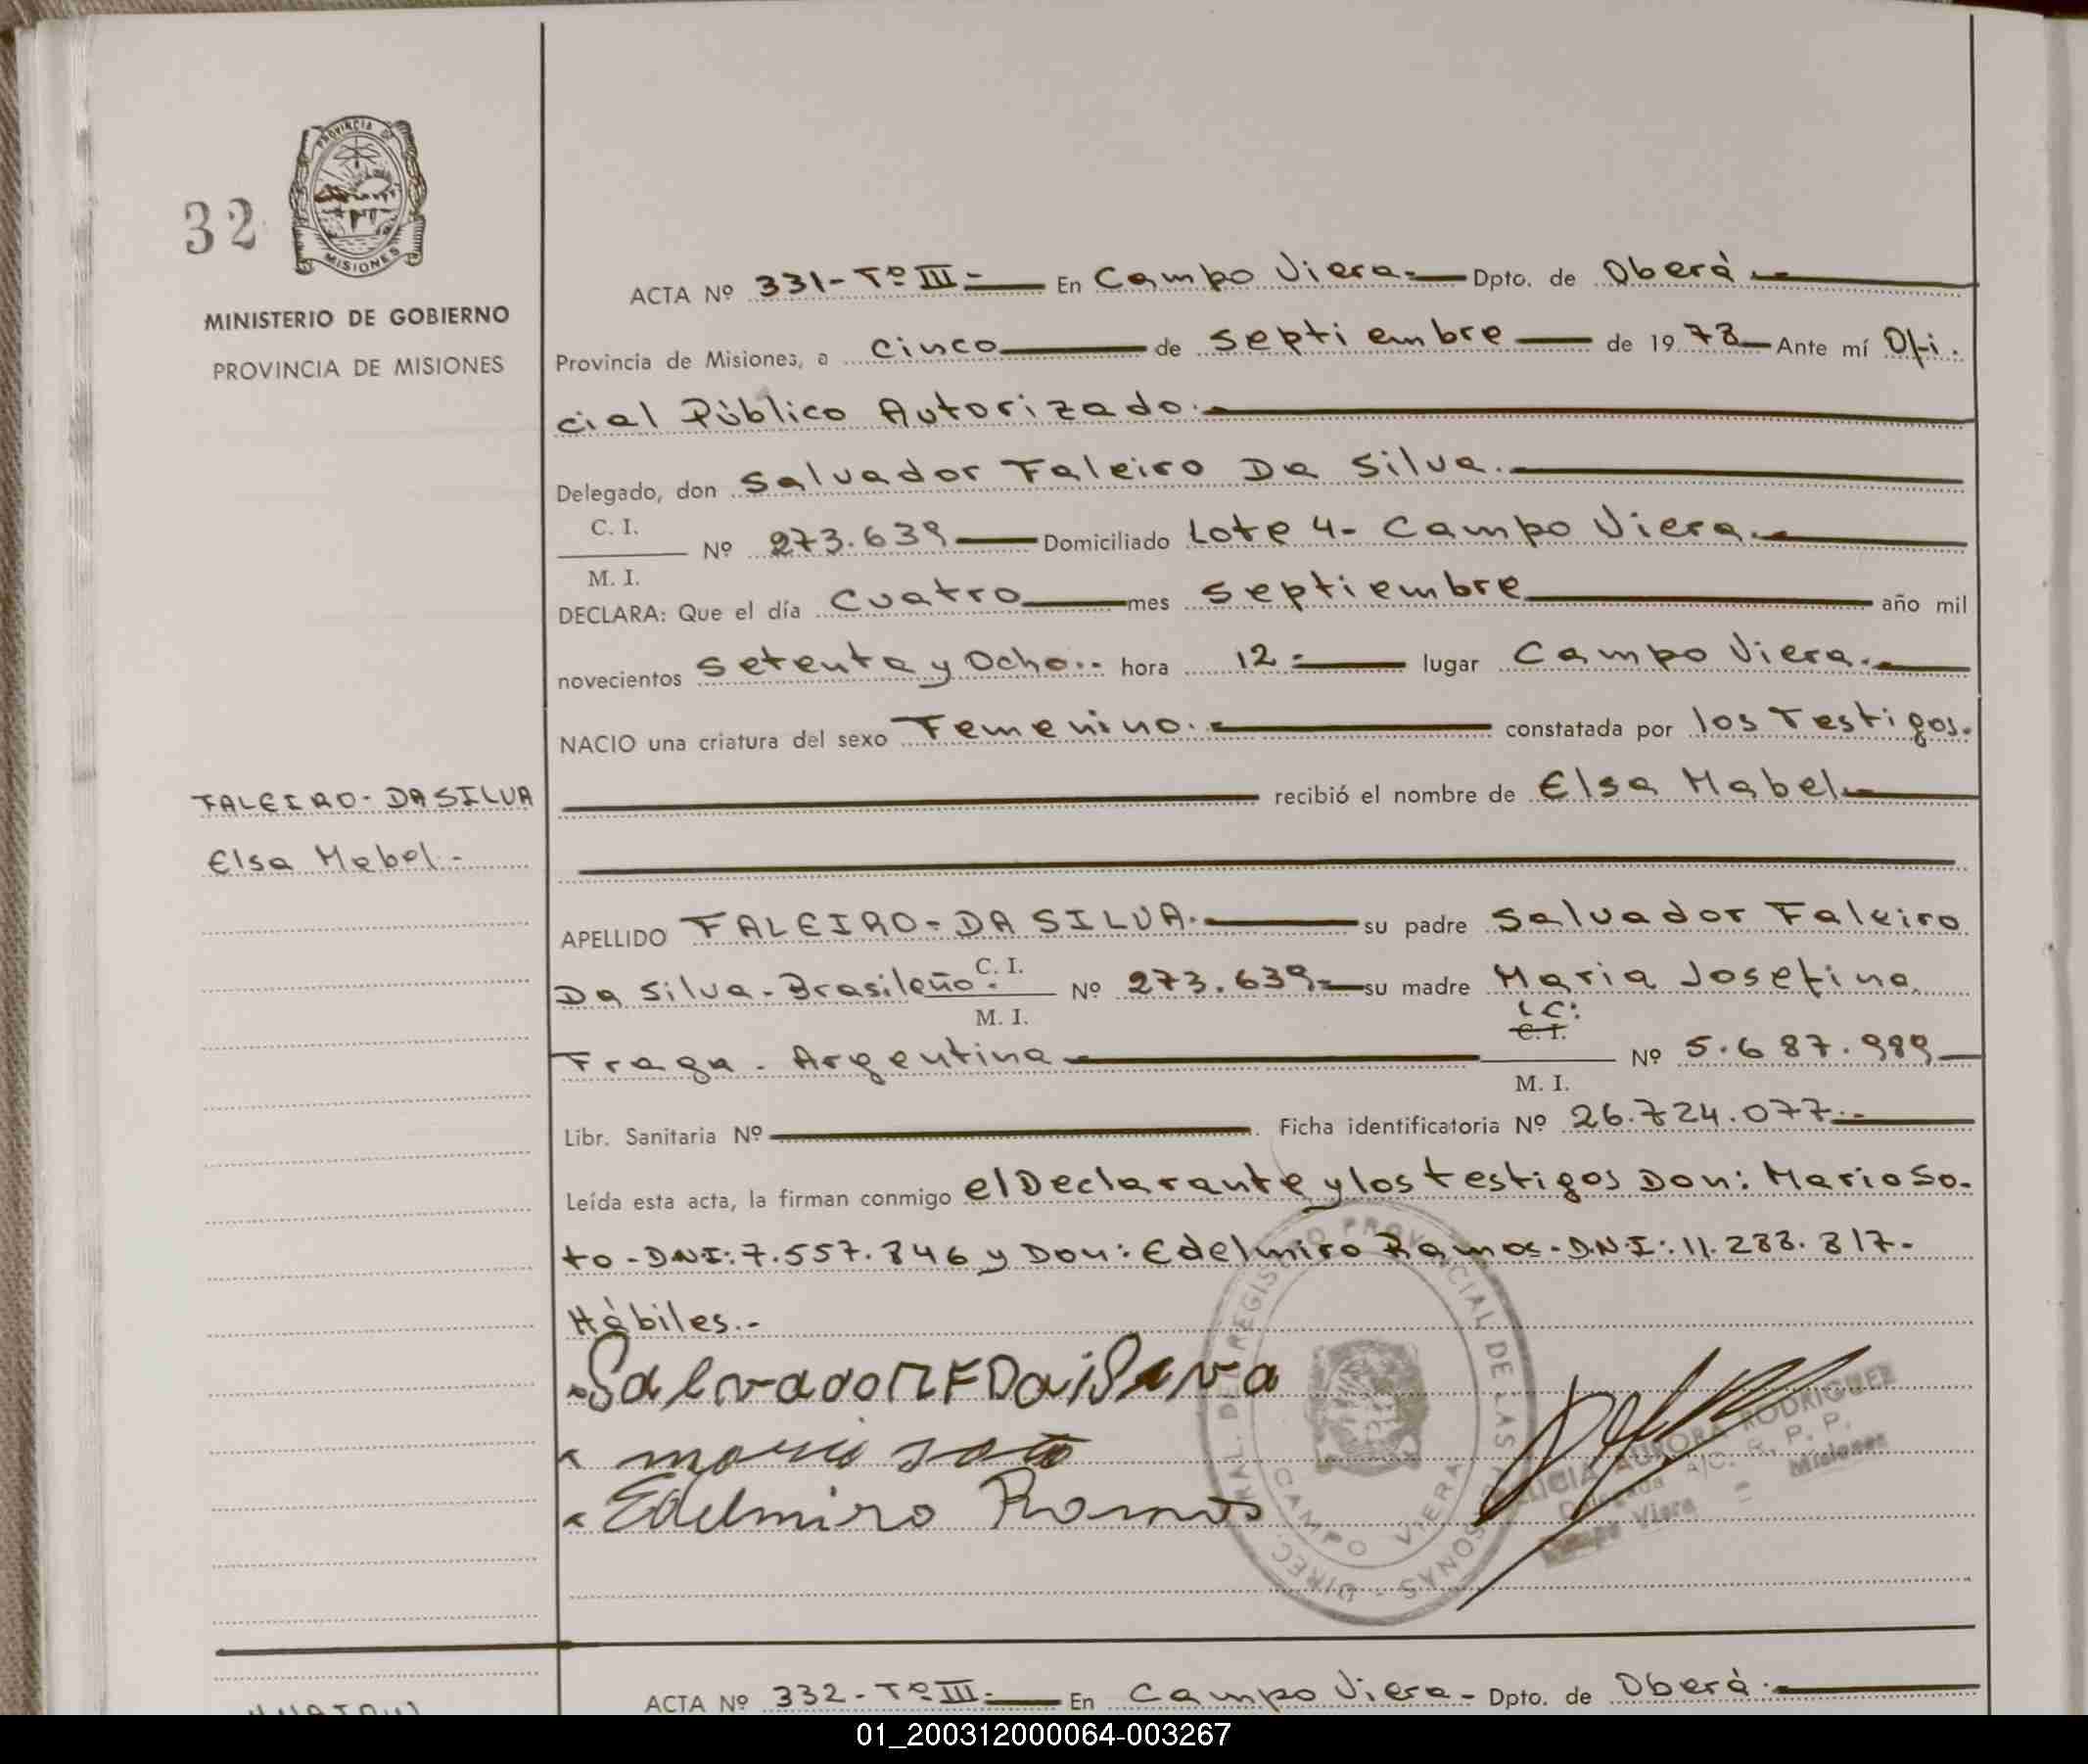 PROVINCIA DE
MISIONES
32
MINISTERIO DE GOBIERNO
PROVINCIA DE MISIONES
ACTA Nº 331-Tº III- En Campo Viera.- Dpto. de Oberá.-
Provincia de Misiones, a cinco de septiembre de 1978 Ante mí Ofi.
cial Público Autorizado.-
Delegado, don Salvador Faleiro Da Silva.
C. I.
Nº 273.639 Domiciliado Lote 4- Campo Viera.-
M. I.
DECLARA: Que el día cuatro mes septiembre año mil
novecientos setenta y Ocho.. hora 12- lugar Campo Viera.-
NACIO una criatura del sexo Femenino.- constatada por los Testigos.
FALEIRO-DA SILVA
recibió el nombre de Elsa Mabel.-
Elsa Mabel.-
APELLIDO FALEIRO-DA SILVA.- su padre Salvador Faleiro
Da Silva-Brasileño. C. I. Nº 273.639- su madre Maria Josefina
M. I.
L C:
C. I.
Fraga - Argentina Nº 5.687.989
M. I.
Libr. Sanitaria Nº Ficha identificatoria Nº 26.724.077.-
Leída esta acta, la firman conmigo el Declarante y los testigos Don: Mario So-
to - DNI: 7.557.846 y Don: Edelmiro Ramos - D.N.I: 11.288.817.-
Hábiles.-
Salvador F Da
mario soto
Edelmiro Ramos
DIREC. GRAL. DEL REGISTRO PROVINCIAL DE LAS PERSONAS
CAMPO VIERA
AURORA RODRIGUEZ
Delegada A/C. R. P. P.
Campo Viera - Misiones
ACTA Nº 332-Tº III- En Campo Viera- Dpto. de Oberá.-
01_200312000064-003267